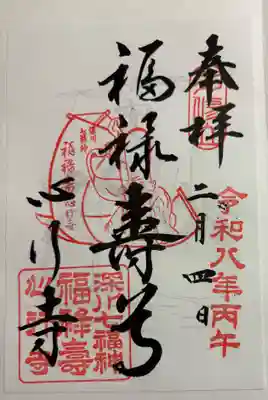 奉拝
令和八年丙午
二月四日
福禄寿尊
心行寺
深川七福神
福禄寿
心行寺
深川七福神
福禄壽
心行寺